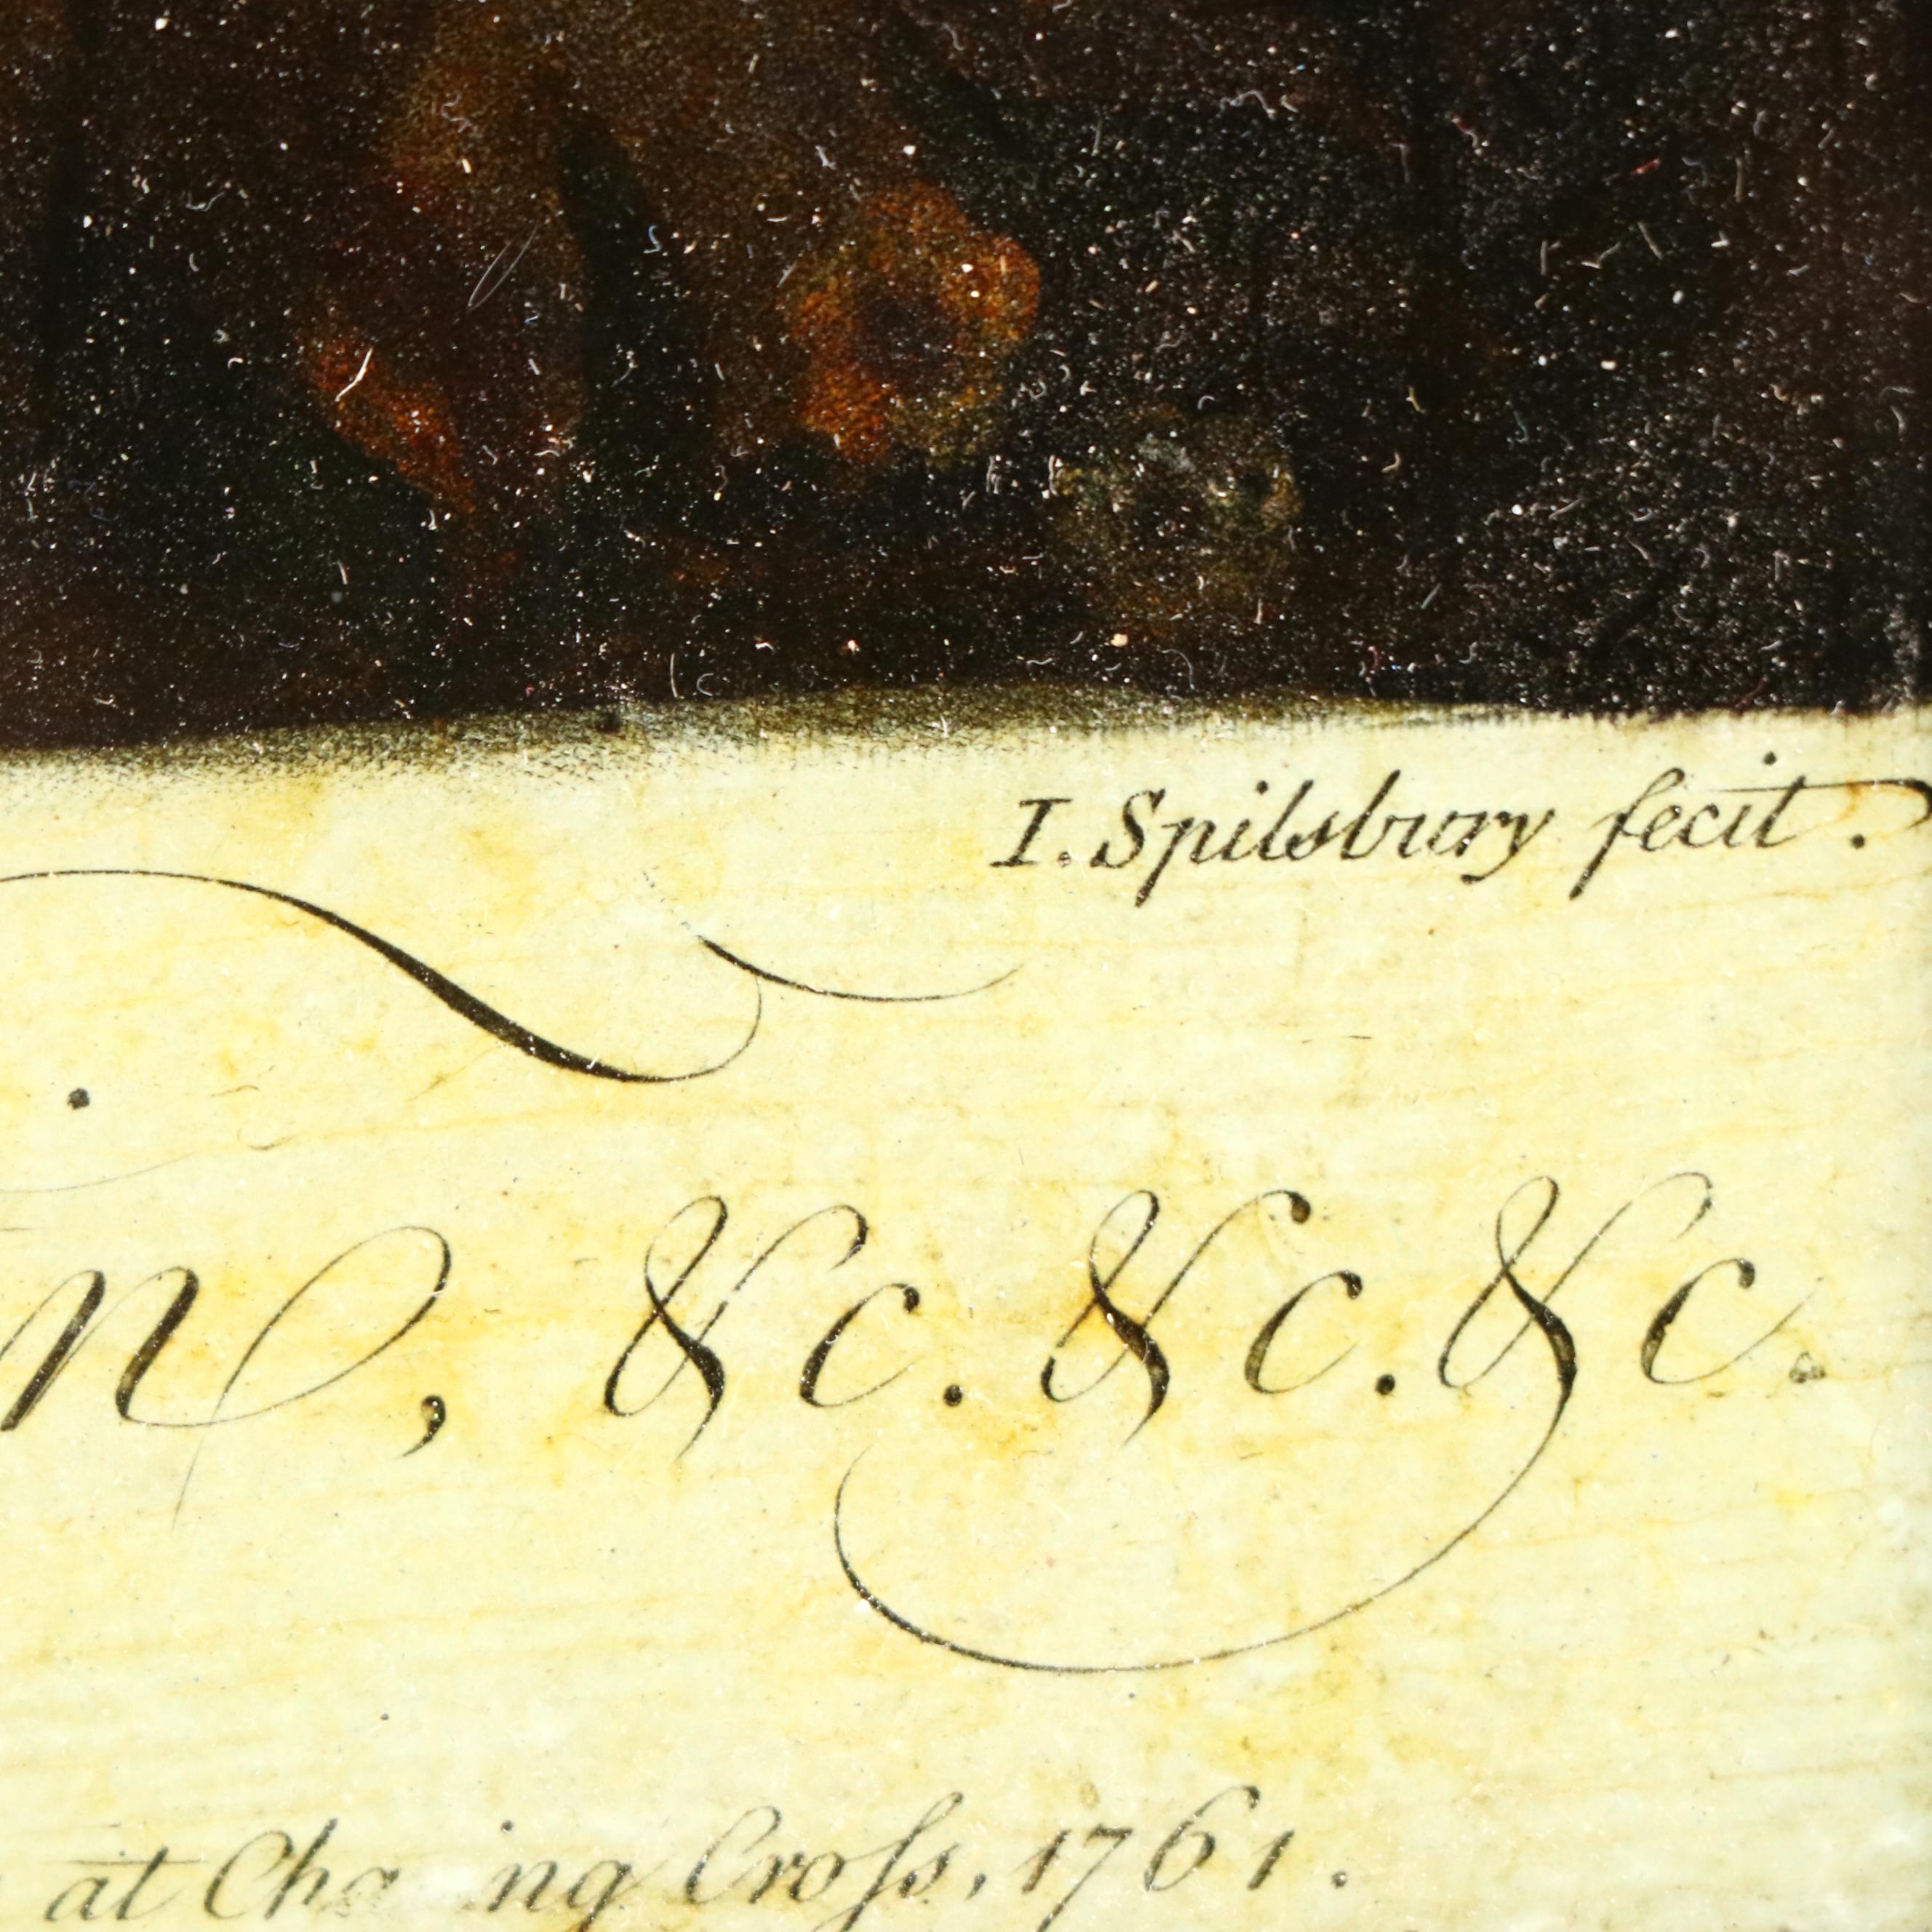 I. Spilsbury fecit.
&c. &c. &c.
at Cha ng Croſs, 1761.